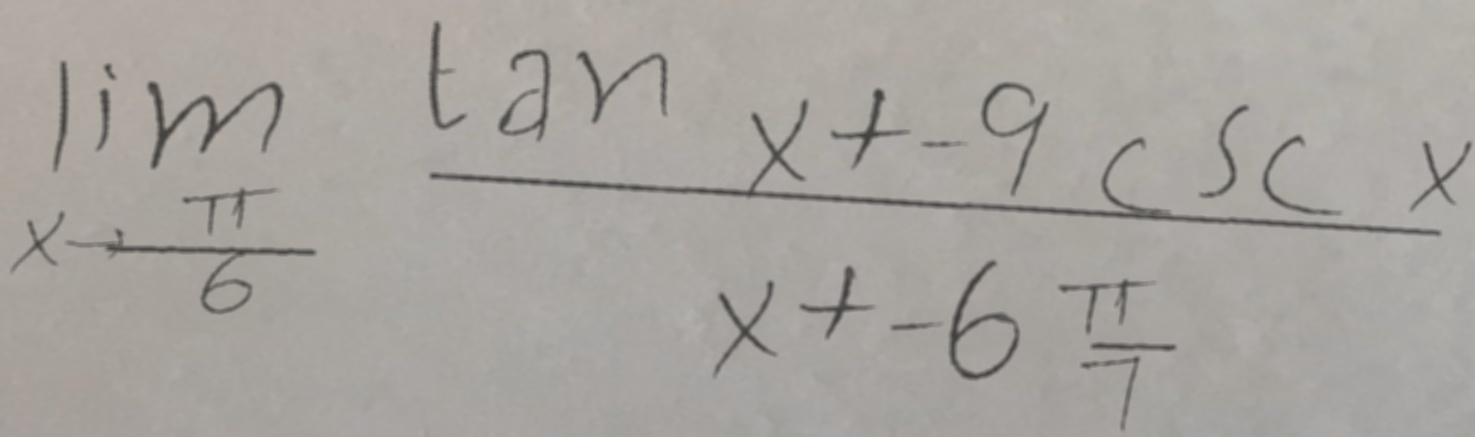 \lim_{x \to \frac{\pi}{6}} \frac{\tan x + -9 \csc x}{x + -6 \frac{\pi}{7}}